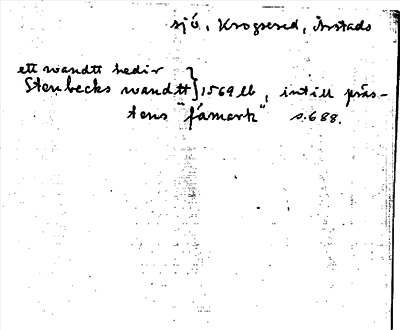 sjö, Krogsered, Årstads
ett wandtt hedir
Stenbecks wandtt } 1569 lb, intill präs-
tens "fämark" s. 688.